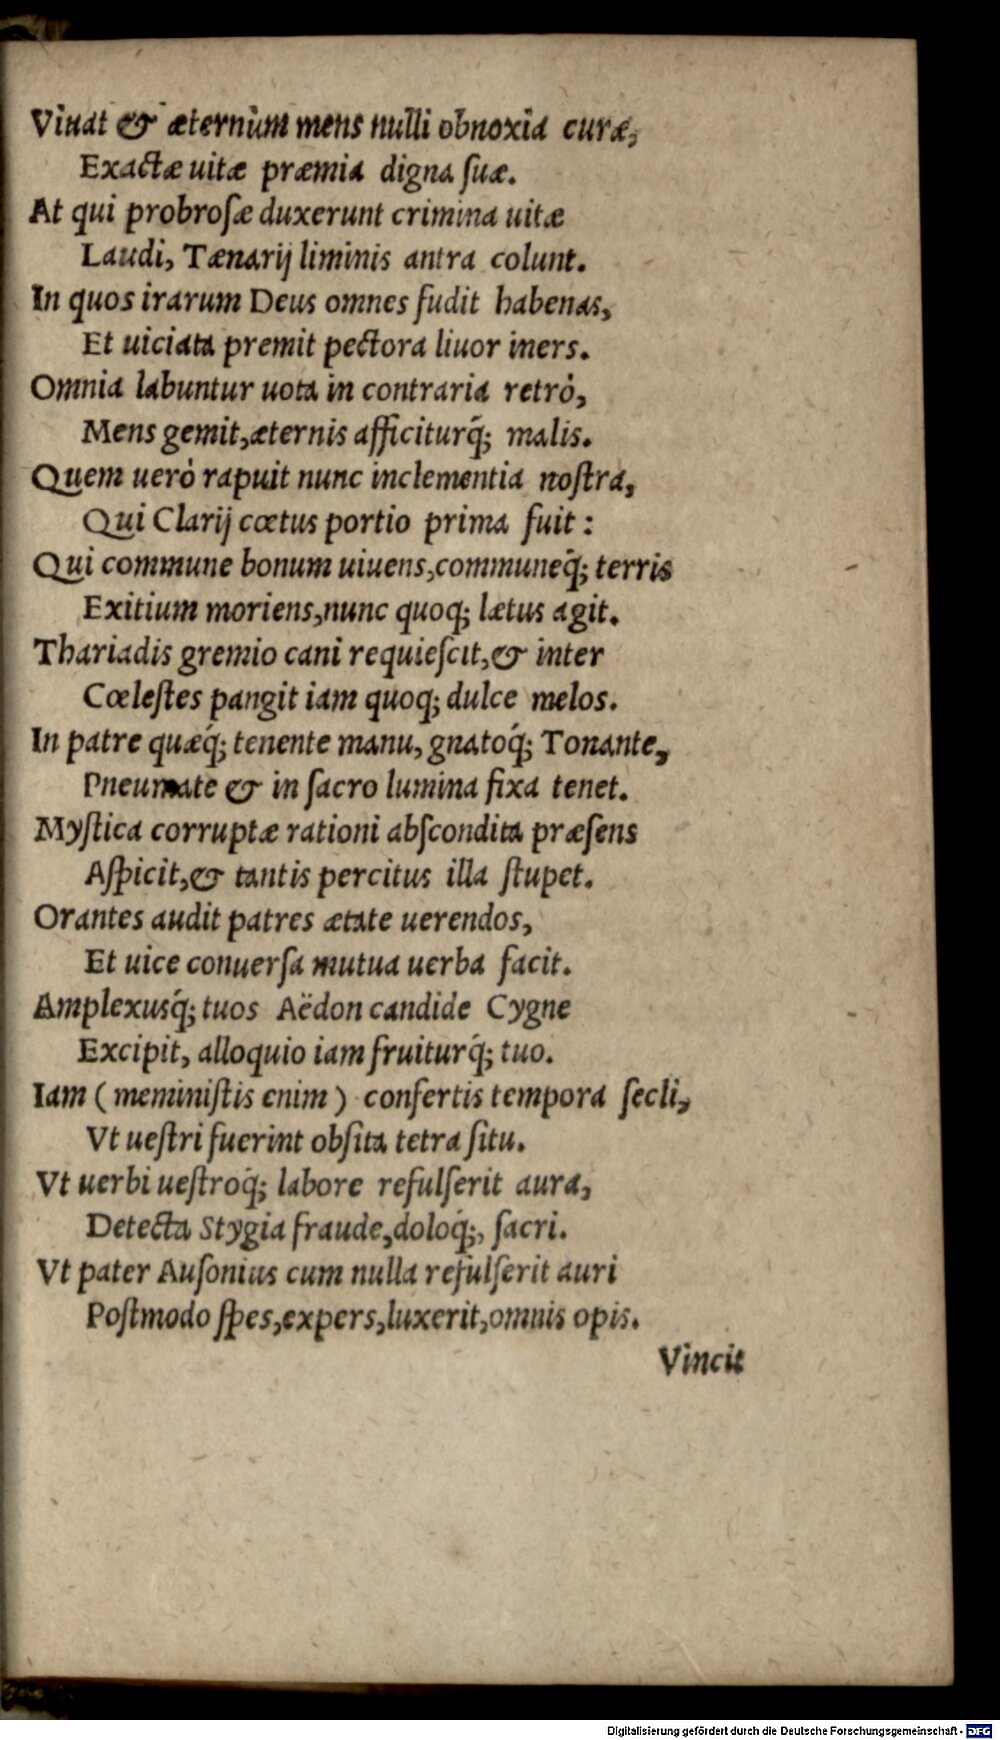 Viuat & æternùm mens nulli obnoxia curæ,
Exactæ uitæ præmia digna ſuæ.
At qui probroſæ duxerunt crimina uitæ
Laudi, Tænarij liminis antra colunt.
In quos irarum Deus omnes fudit habenas,
Et uiciata premit pectora liuor iners.
Omnia labuntur uota in contraria retrò,
Mens gemit,æternis afficiturq́; malis.
Quem uerò rapuit nunc inclementia noſtra,
Qui Clarij cœtus portio prima fuit :
Qui commune bonum uiuens,communeq́; terris
Exitium moriens,nunc quoq; lætus agit.
Thariadis gremio cani requieſcit,& inter
Cœleſtes pangit iam quoq; dulce melos.
In patre quæq́; tenente manu, gnatoq́; Tonante,
Pneumate & in ſacro lumina fixa tenet.
Myſtica corruptæ rationi abſcondita præſens
Aſpicit,& tantis percitus illa ſtupet.
Orantes audit patres ætate uerendos,
Et uice conuerſa mutua uerba facit.
Amplexusq́; tuos Aëdon candide Cygne
Excipit, alloquio iam fruiturq́; tuo.
Iam ( meminiſtis enim ) confertis tempora ſecli,
Vt ueſtri fuerint obſita tetra ſitu.
Vt uerbi ueſtroq́; labore refulſerit aura,
Detecta Stygia fraude,doloq́;, ſacri.
Vt pater Auſonius cum nulla refulſerit auri
Poſtmodo ſpes,expers,luxerit,omnis opis.
Vincit
Digitalisierung gefördert durch die Deutsche Forschungsgemeinschaft - DFG